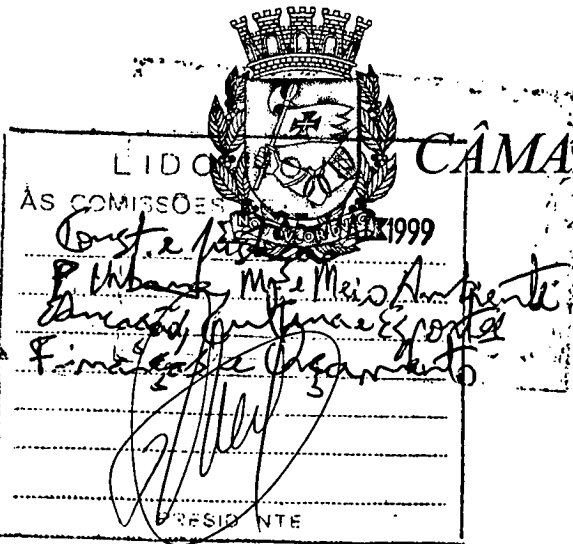 CÂMA
LIDO
ÀS COMISSÕES
1999
Const. e Justiça
P. Urbana, M. e Meio Ambiente
Educação, Cultura e Esportes
Finanças e Orçamento
PRESIDENTE